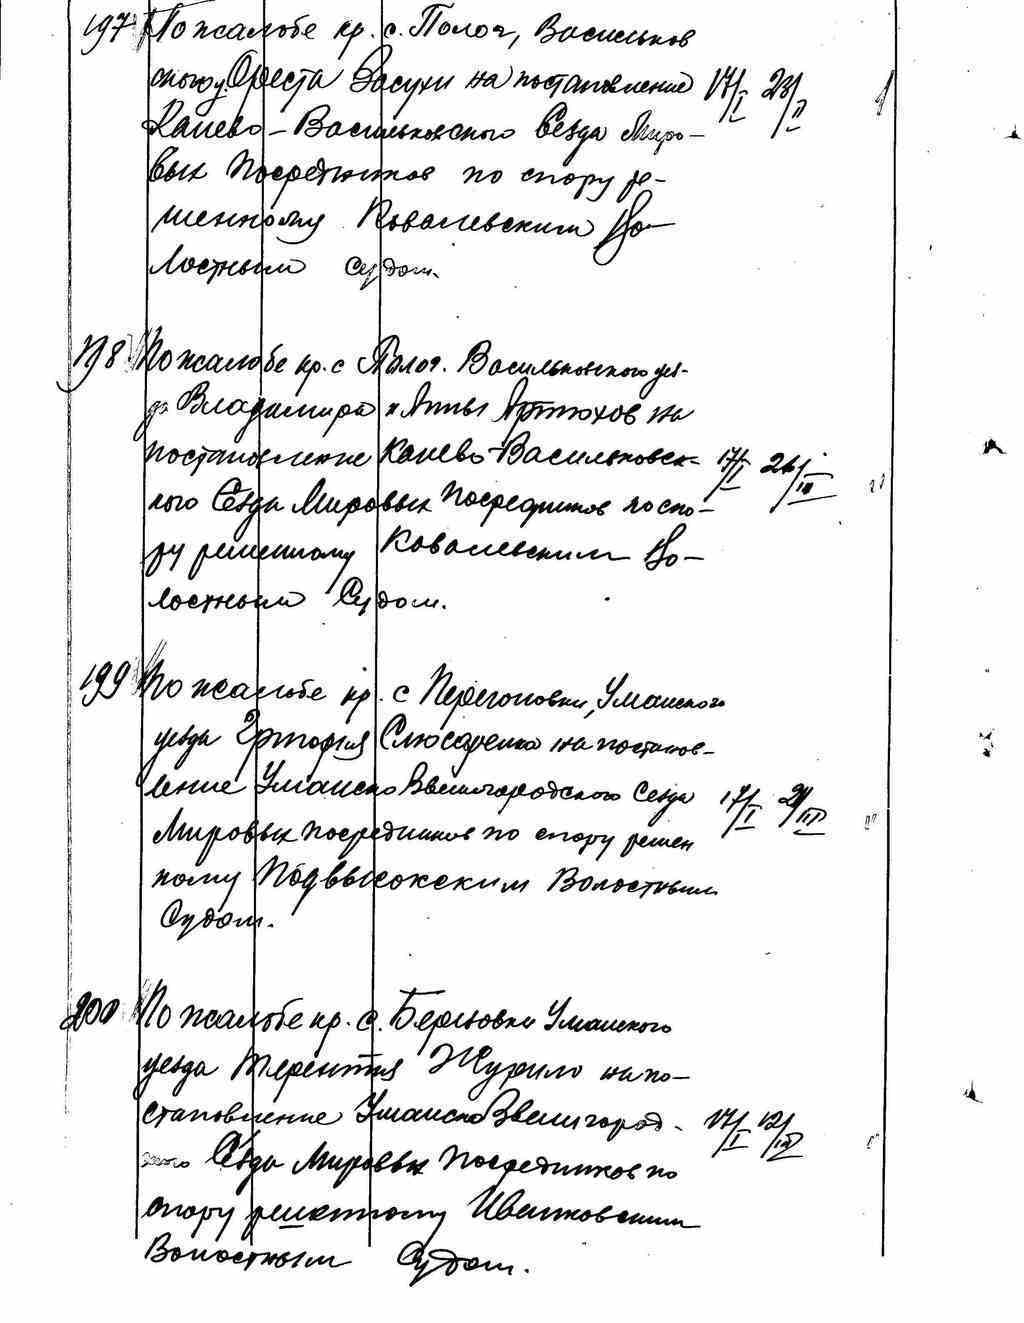 197 По жалобе кр. с. Полог, Васильков
ского у. Ореста Засухи на постановление 17/I 23/II
Канево-Васильковского Сезда Миро-
вых Посредников по спору ре-
шенному Ковалевским Во-
лостным судом.
198 По жалобе кр. с Полог. Васильковского уез-
да Владимира и Анны Артюхов на
постановление Канево-Васильковск- 17/I /III
кого Сезда Мировых Посредников по спо-
ру решенному Ковалевским Во-
лостным Судом.
199 По жалобе кр. с Перегоновки, Уманского
уезда Слюсаренко на постанов-
ление Уманско Звенигородского Сезда 17/I /III
Мировых посредников по спору решен
ному Подвысокским Волостным
Судом.
200 По жалобе кр. с. Берёзовки Уманского
уезда Терентия Журило на по-
становление Уманско Звенигород- 17/I 12/III
ского Сезда Мировых Посредников по
спору решенному Ивановским
Волостным Судом.